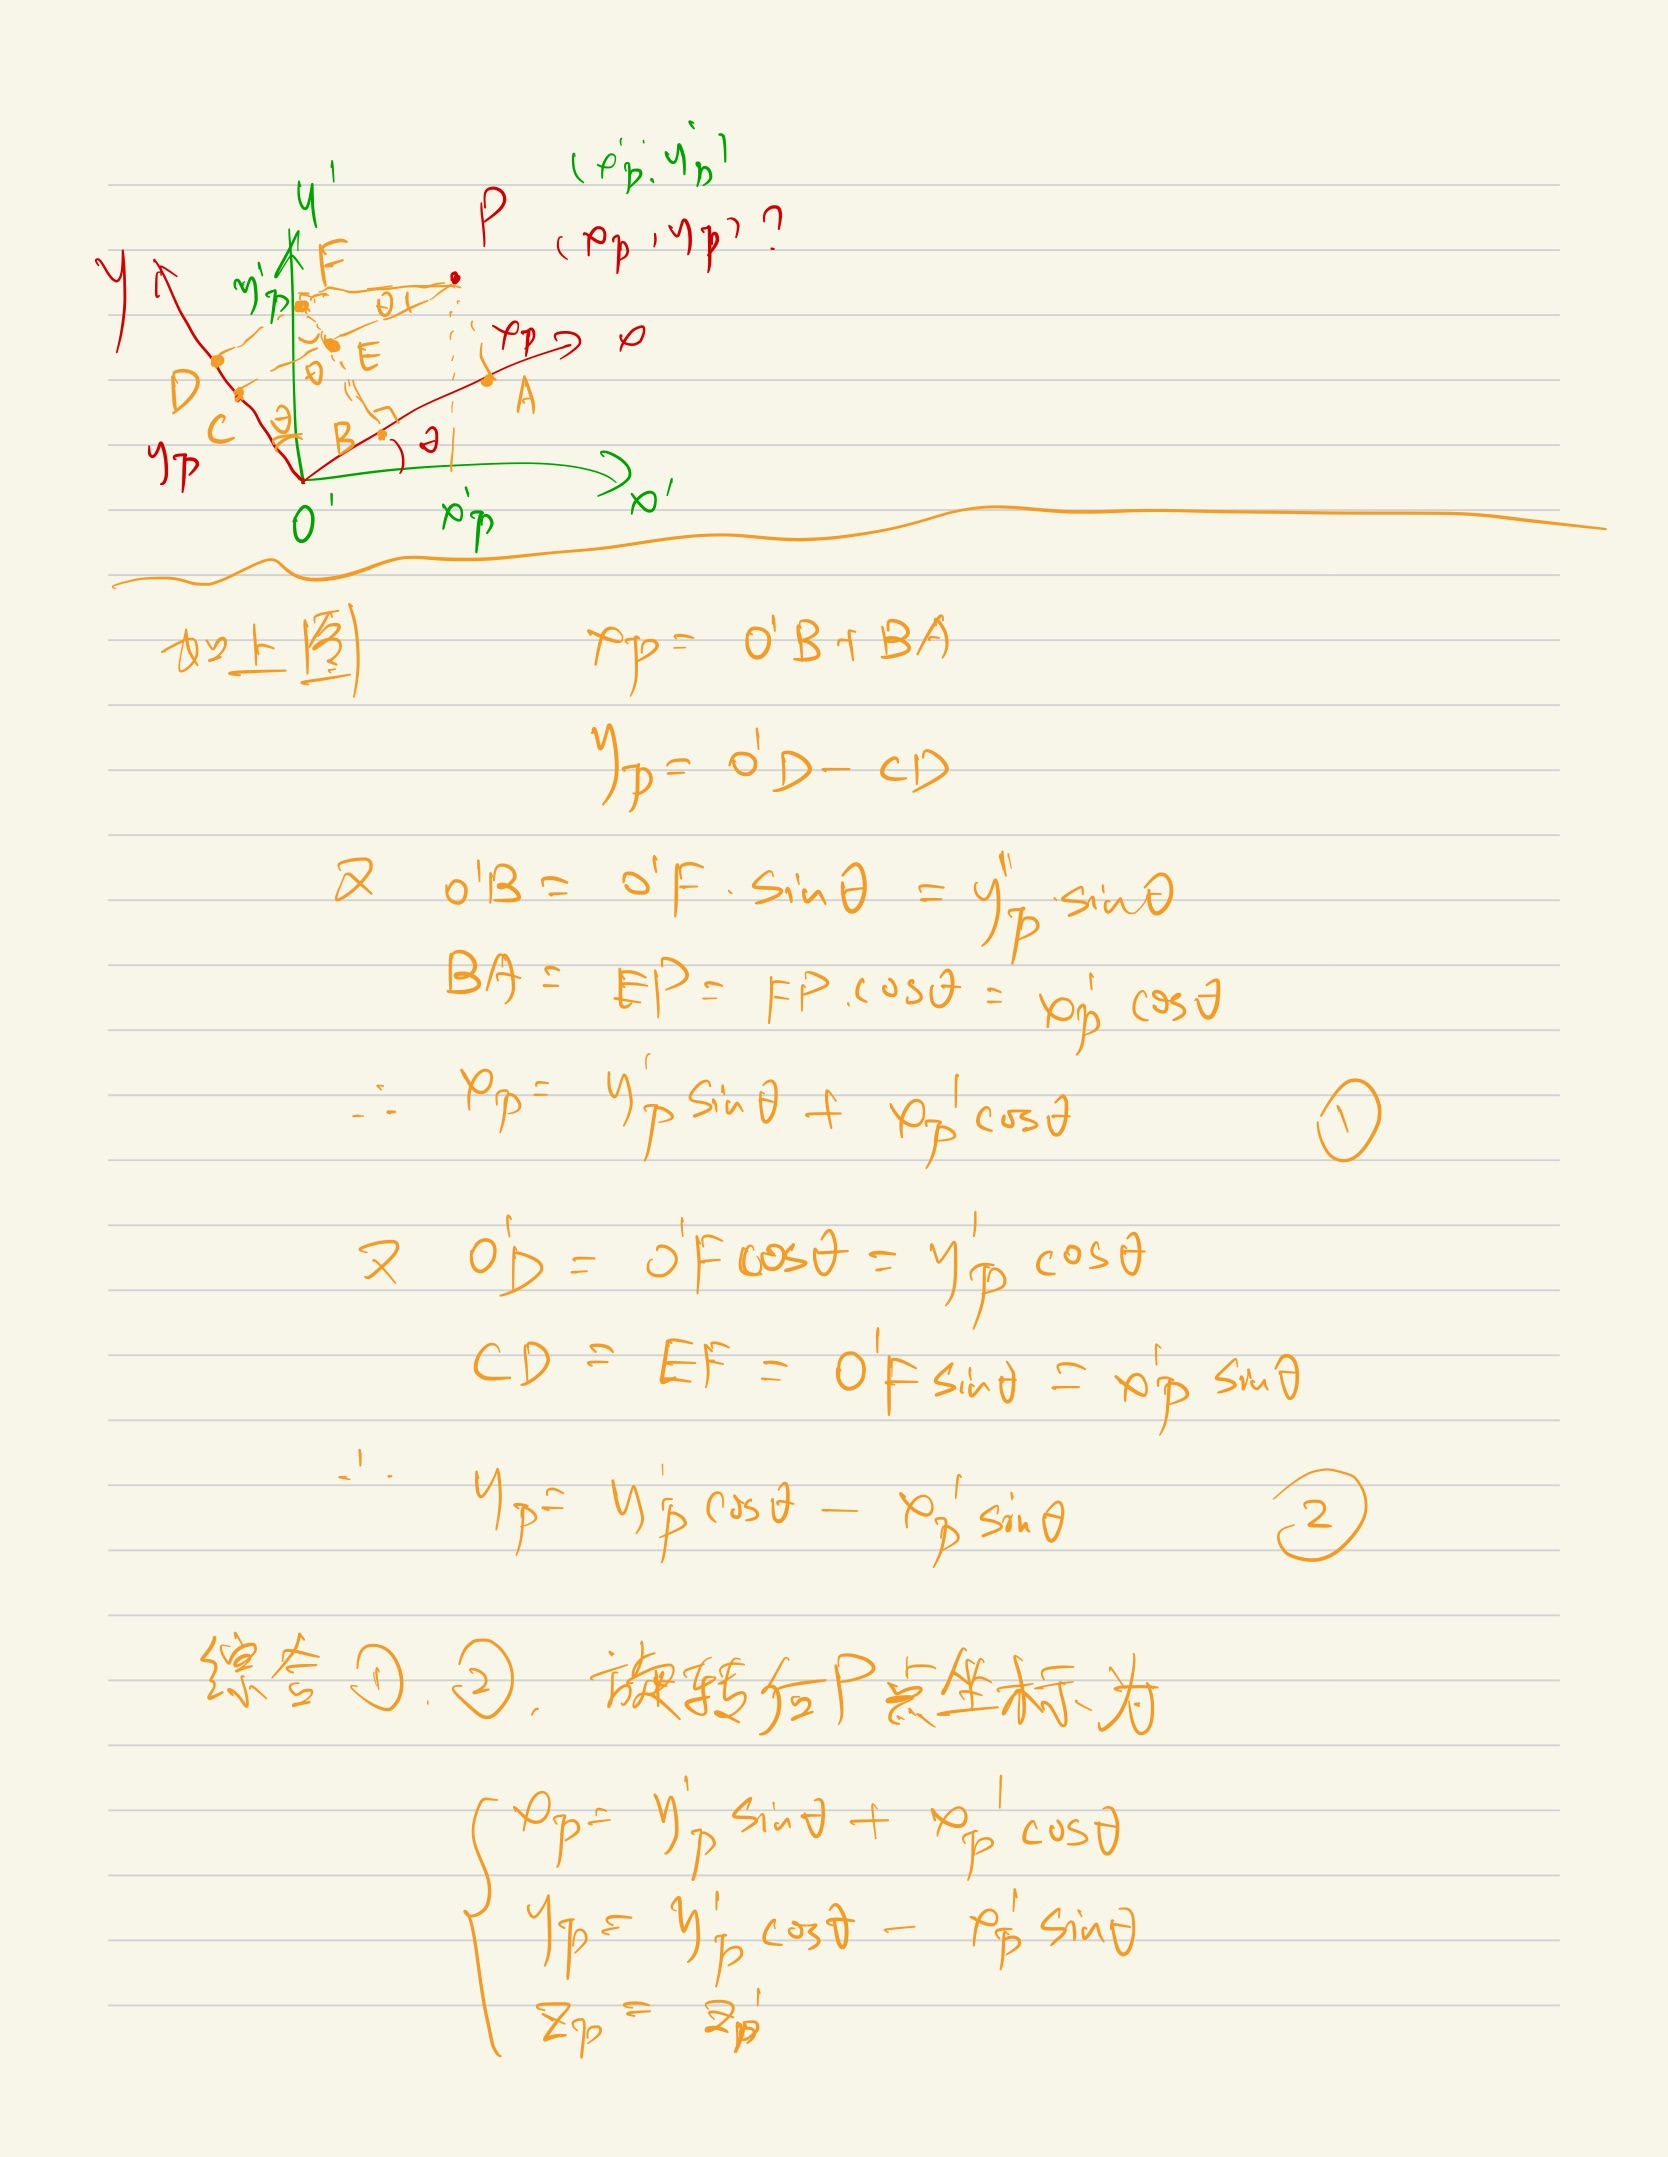 y'
P
(x'p, y'p)
(xp, yp) ?
y
y'p
F
θ
xp
x
D
E
θ
A
C
θ
B
θ
yp
O'
x'p
x'
如上图
xp = O'B + BA
yp = O'D − CD
又 O'B = O'F · sinθ = y'p · sinθ
BA = EP = FP · cosθ = x'p cosθ
∴ xp = y'p sinθ + x'p cosθ ①
又 O'D = O'F cosθ = y'p cosθ
CD = EF = O'F sinθ = x'p sinθ
∴ yp = y'p cosθ − x'p sinθ ②
综合①.②, 旋转后P点坐标为
xp = y'p sinθ + x'p cosθ
yp = y'p cosθ − x'p sinθ
zp = zp'